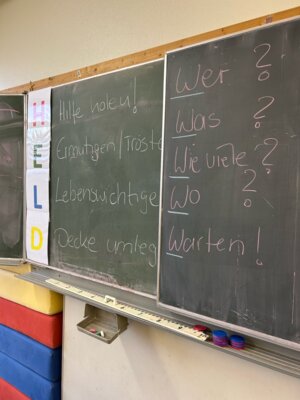 H Hilfe holen!
E Ermutigen/Tröste
L Lebenswichtige
D Decke umleg
Wer ?
Was ?
Wie viele ?
Wo ?
Warten !